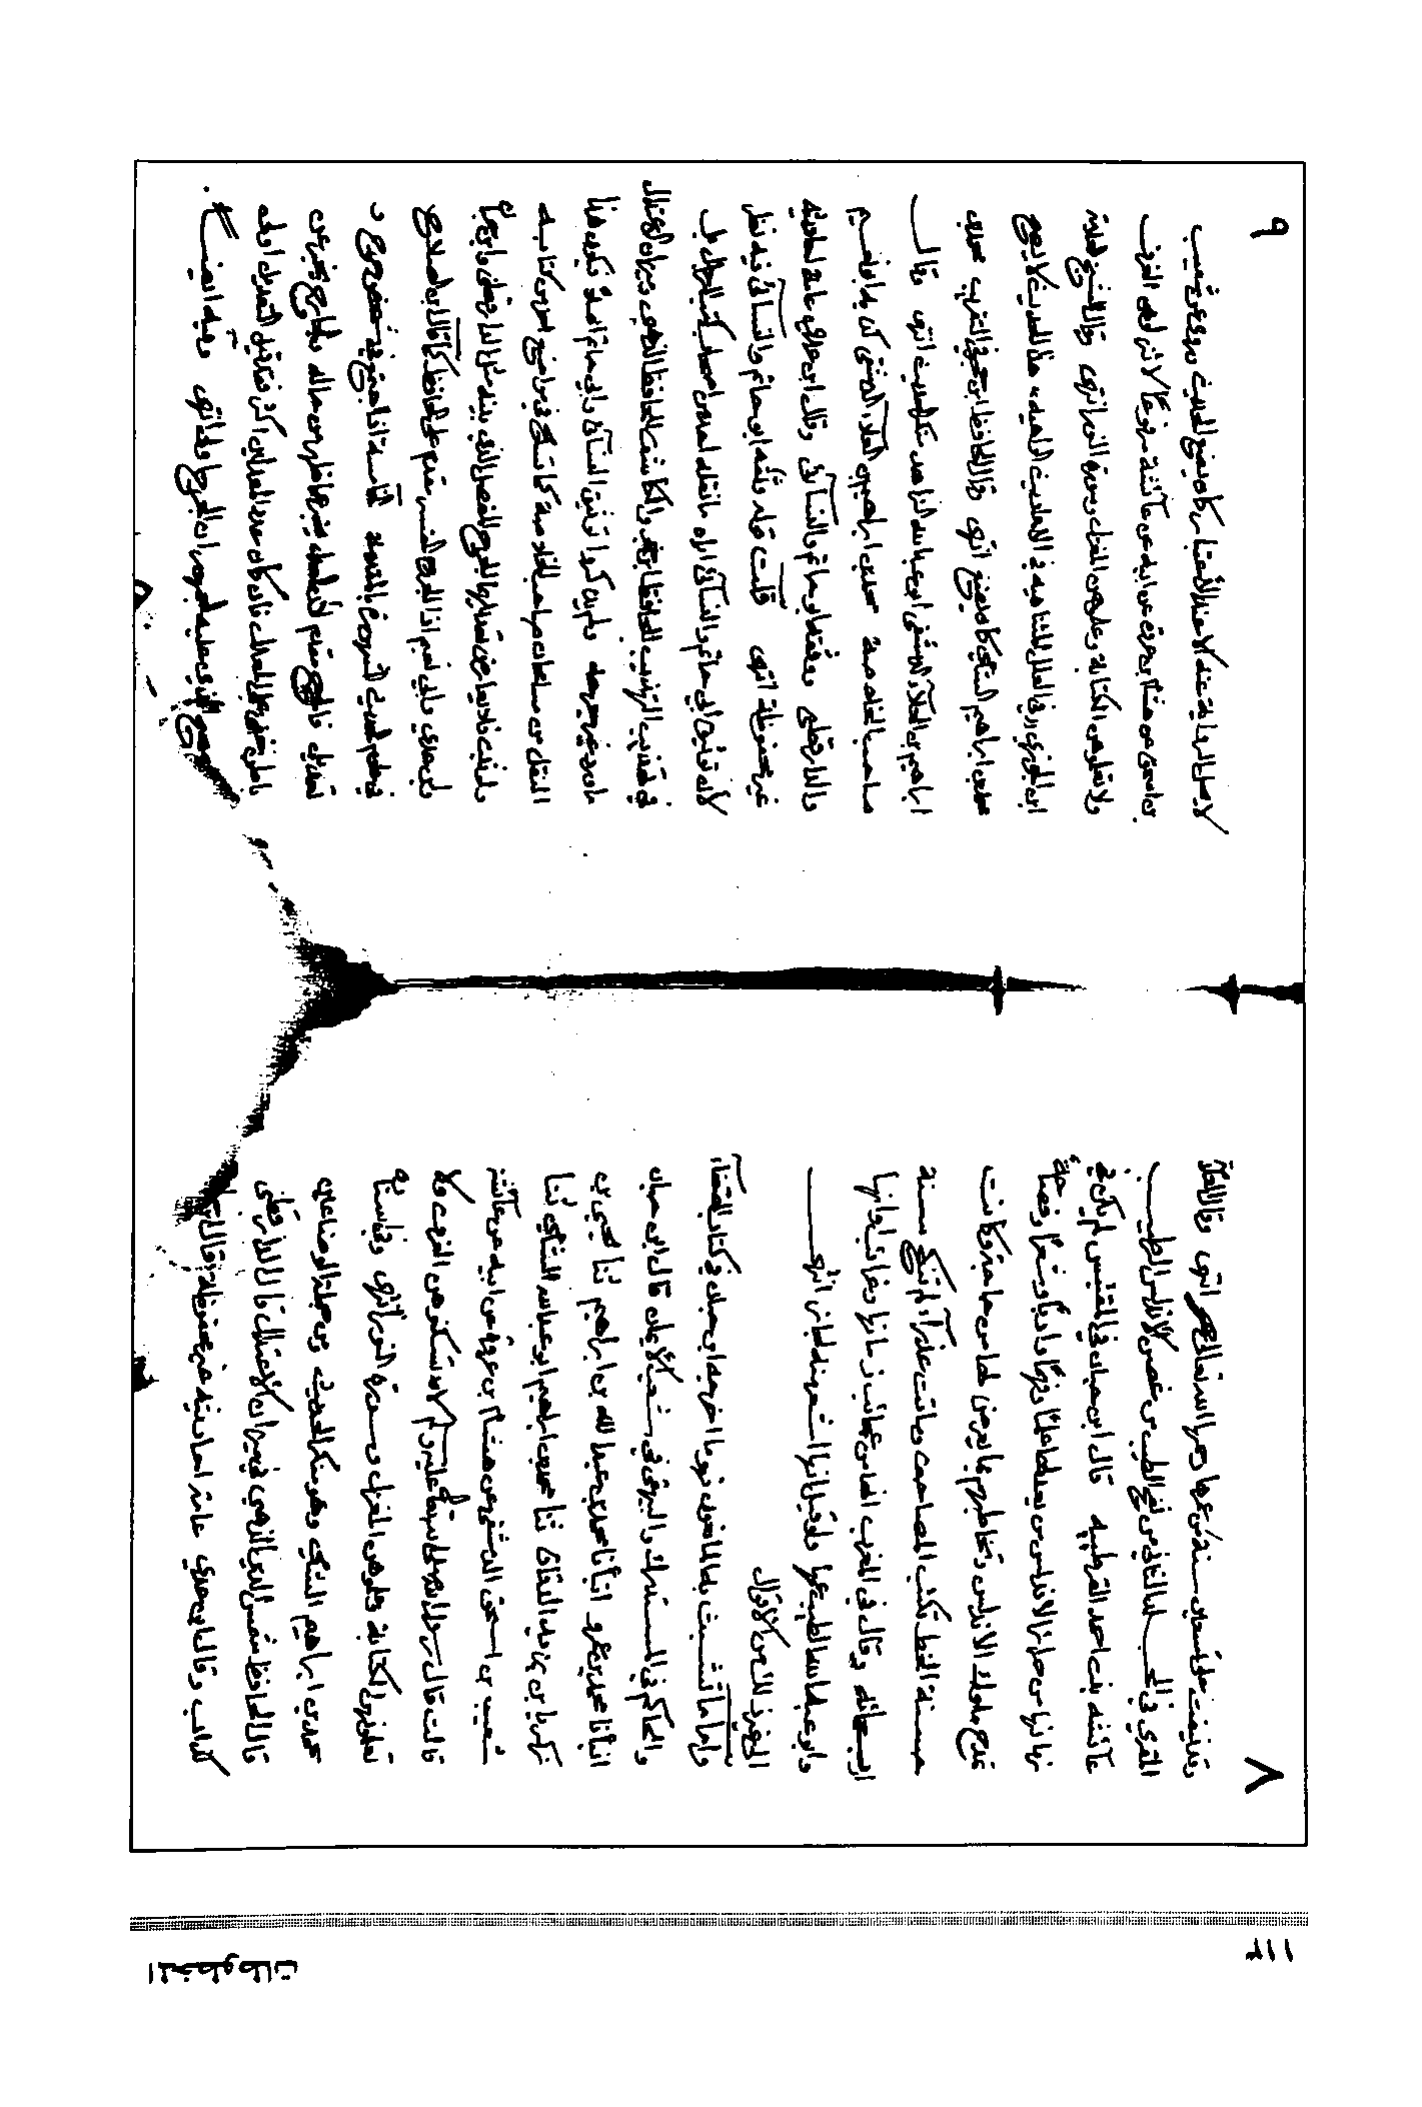 ٨
وقد نيفت على تسعين سنة رضي عنها ورحمها الله تعالى انتهى وقال العلامة
المقري في المجلد الثاني من نفح الطيب من غصن الاندلس الرطيب
عائشة بنت احمد القرطبية قال ابن حيان في المقتبس لم يكن في
زمانها من حرائر الاندلس من يعدلها علما وفهما وادبا وشعرا وفصاحة
تمدح ملوك الاندلس وتخاطبهم بما يعرض لها من حاجة وكانت
حسنة الخط تكتب المصاحف وماتت عذراء لم تنكح سنة
اربعمائة وقال في المغرب انها من عجائب زمانها وغرائب اوانها
وابو عبد الله الطبيب عمها ولو قيل انها اشعر منه لجاز انتهى
العزيز للامن الاقوال
واما ما تشبث به المانعون فهو ما اخرجه ابن حبان في كتاب الضعفاء
والحاكم في المستدرك والبيهقي في شعب الايمان قال ابن حبان
انبأنا محمد بن عمرو انبأنا محمد بن عبد الله بن ابراهيم ثنا يحيى بن
زكريا بن يزيد الدقاق ثنا محمد بن ابراهيم ابو عبد الله الشامي ثنا
شعيب بن اسحق الدمشقي عن هشام بن عروة عن ابيه عن عائشة
قالت قال رسول الله صلى الله عليه وسلم لا تسكنوهن الغرف ولا
تعلموهن الكتابة وعلموهن المغزل وسورة النور انتهى وفي اسناده
محمد بن ابراهيم الشامي وهو منكر الحديث ومن جملة الوضاعين
قال الحافظ شمس الدين الذهبي في ميزان الاعتدال قال الدارقطني
كذاب وقال ابن عدي عامة احاديثه غير محفوظة وقال ابن حبان
٩
لا يحل الرواية عنه الا عند الاعتبار كان يضع الحديث وروى عن شعيب
بن اسحق عن هشام بن عروة عن ابيه عن عائشة مرفوعا لا تنزلوهن الغرف
ولا تعلموهن الكتابة وعلموهن المغزل وسورة النور انتهى وقال الشيخ العلامة
ابن الجوزي في العلل المتناهية في الاحاديث الواهية هذا الحديث لا يصح
محمد بن ابراهيم الشامي كان يضع انتهى وقال الحافظ ابن حجر في التقريب محمد بن
ابراهيم بن العلاء الدمشقي ابو عبد الله الزاهد منكر الحديث انتهى وقال
صاحب الخلاصة محمد بن ابراهيم بن العلاء الدمشقي كذبه ابو نعيم
والدارقطني ووثقه ابو حاتم والنسائي وقال ابن عدي عامة احاديثه
غير محفوظة انتهى قلت قوله وثقه ابو حاتم والنسائي فيه نظر
لان توثيق ابي حاتم والنسائي اياه ما نقله احد من اصحاب كتب الرجال بل
في تهذيب التهذيب للحافظ ابن حجر والكاشف للحافظ الذهبي وميزان الاعتدال
ما ورد غير جرحه ولم يذكروا توثيق النسائي وابي حاتم اصلا فيكون هذا
النقل من مسامحات صاحب الخلاصة كما تسامح في مواضع اخر من كتابه
ولو ثبت فلا يعارض تعديلهما الجرح المفصل الذي بينه مثل الدارقطني وابن حبان
وابن عدي وابي نعيم اذ الجرح المفسر مقدم على التعديل كما قال ابن الصلاح
في علوم الحديث المعروف بالمقدمة الخامسة اذا اجتمع في شخص جرح و
تعديل فالجرح مقدم لان المعدل يخبر عما ظهر من حاله والجارح يخبر عن
باطن خفي على المعدل فان كان عدد المعدلين اكثر فقد قيل التعديل اولى
والصحيح الذي عليه الجمهور ان الجرح اولى انتهى وفيه ايضا
المخطوطات
١١٢